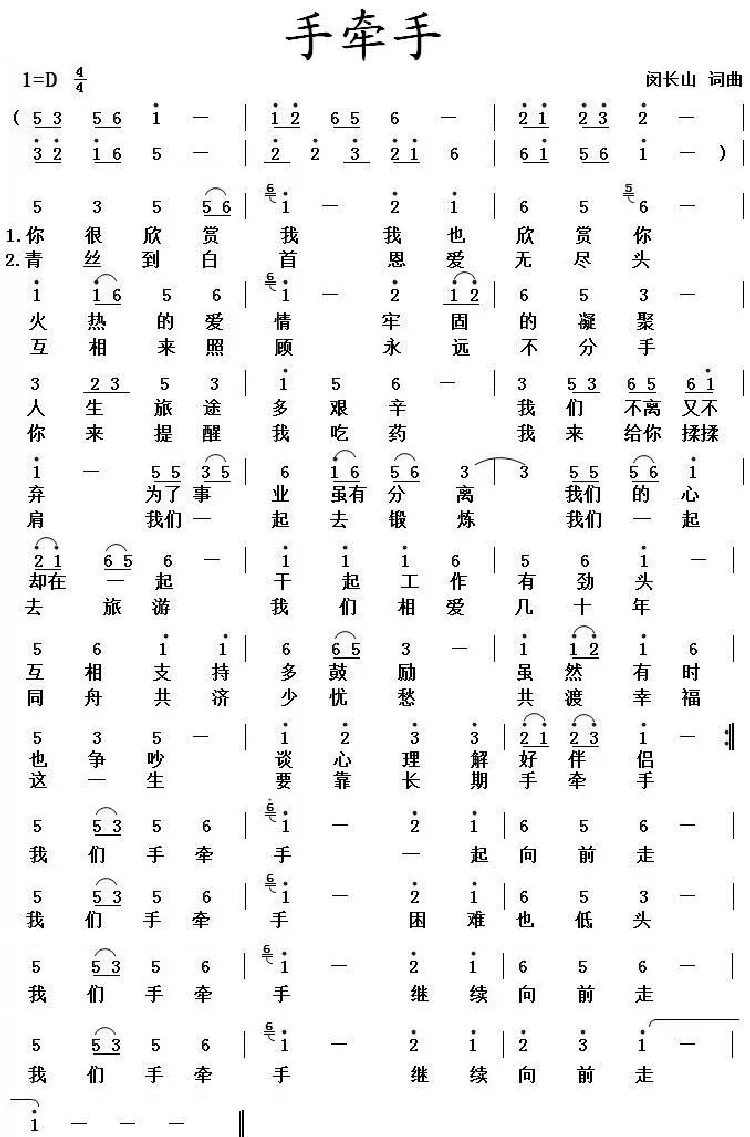 手牵手
1=D 4/4 闵长山 词曲
( 5 3 5 6 i — | i 2̇ 6 5 6 — | 2̇ i 2̇ 3̇ 2̇ — |
3̇ 2̇ i 6 5 — | 2̇ 2̇ 3̇ 2̇ i 6 | 6 i 5 6 1 — )
5 3 5 5 6 | 6 i — 2̇ i | 6 5 5 6 — |
1.你 很 欣 赏 我 我 也 欣 赏 你
2.青 丝 到 白 首 恩 爱 无 尽 头
i i 6 5 6 | 6 i — 2̇ i 2̇ | 6 5 3 — |
火 热 的 爱 情 牢 固 的 凝 聚
互 相 来 照 顾 永 远 不 分 手
3 2 3 5 3 | i 5 6 — | 3 5 3 6 5 6 i |
人 生 旅 途 多 艰 辛 我 们 不离 又不
你 来 提 醒 我 吃 药 我 来 给你 揉揉
i — 5 5 3 5 | 6 i 6 5 6 3 | 3 5 5 5 6 i |
弃 为了 事 业 虽有 分 离 我们 的 心
肩 我们 一 起 去 锻 炼 我们 一 起
2̇ i 6 5 6 — | i i i 6 | 5 6 i — |
却在 一 起 干 起 工 作 有 劲 头
去 旅 游 我 们 相 爱 几 十 年
5 6 i i | 6 6 5 3 — | i i 2̇ i 6 |
互 相 支 持 多 鼓 励 虽 然 有 时
同 舟 共 济 少 忧 愁 共 渡 幸 福
5 3 5 — | i 2̇ 3̇ 3̇ | 2̇ i 2̇ 3̇ i — :‖
也 争 吵 谈 心 理 解 好 伴 侣
这 一 生 要 靠 长 期 手 牵 手
5 5 3 5 6 | 6 i — 2̇ i | 6 5 6 — |
我 们 手 牵 手 一 起 向 前 走
5 5 3 5 6 | 6 i — 2̇ i | 6 5 3 — |
我 们 手 牵 手 困 难 也 低 头
5 5 3 5 6 | 6 i — 2̇ i | 6 5 6 — |
我 们 手 牵 手 继 续 向 前 走
5 5 3 5 6 | 6 i — 2̇ i | 2̇ 3̇ i — |
我 们 手 牵 手 继 续 向 前 走
i — — — ‖